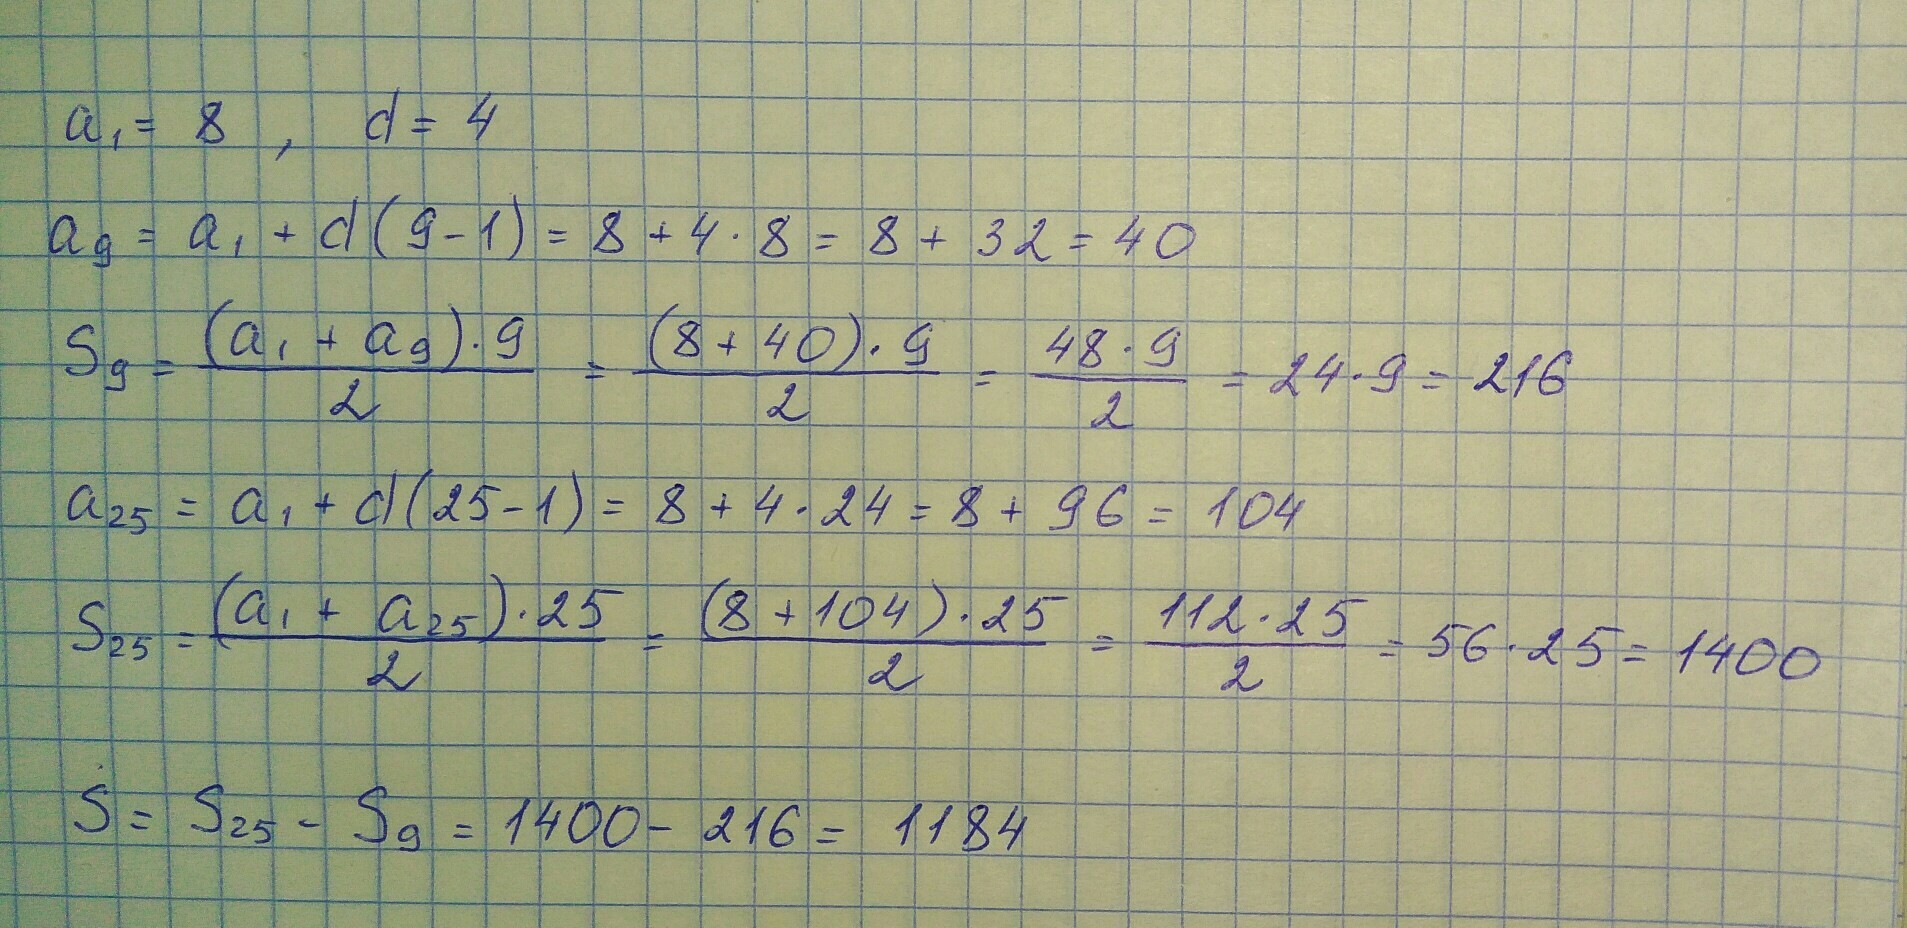 a₁ = 8 , d = 4
a₉ = a₁ + d(9-1) = 8 + 4·8 = 8 + 32 = 40
S₉ = (a₁ + a₉)·9/2 = (8+40)·9/2 = 48·9/2 = 24·9 = 216
a₂₅ = a₁ + d(25-1) = 8 + 4·24 = 8 + 96 = 104
S₂₅ = (a₁ + a₂₅)·25/2 = (8+104)·25/2 = 112·25/2 = 56·25 = 1400
S = S₂₅ - S₉ = 1400 - 216 = 1184